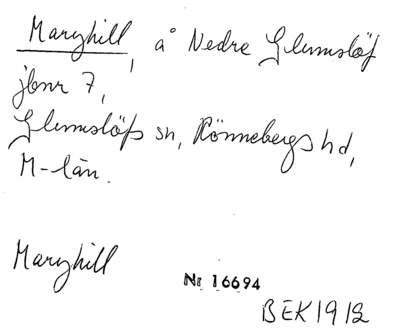 Maryhill, å Nedre Glumslöf
jbnr 7,
Glumslöfs sn, Rönnebergs hd,
M-län.
Maryhill
Nr 16694
BEK 1912